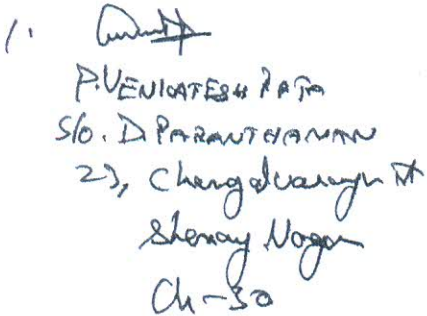 1.
P. VENKATESH RAJA
S/o. D PARANTHAMAN
23, Chengalvarayan St
Shenoy Nagar
Ch-30